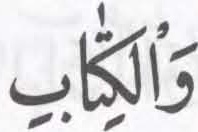 وَالْكِتٰابِ